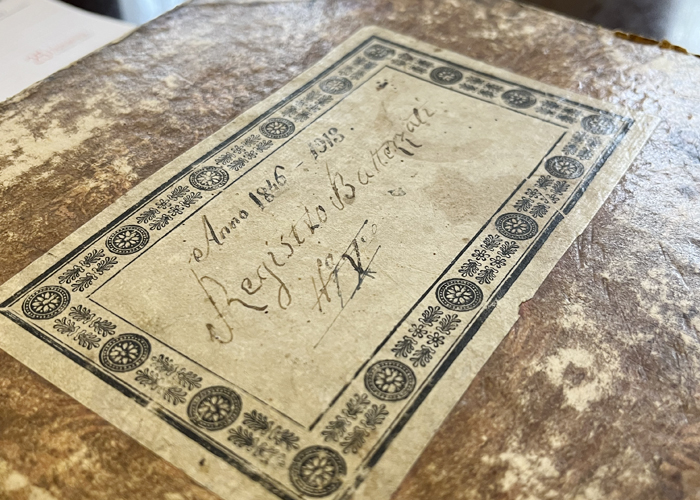 Anno 1846 - 1913
Registro Battezzati
N° V